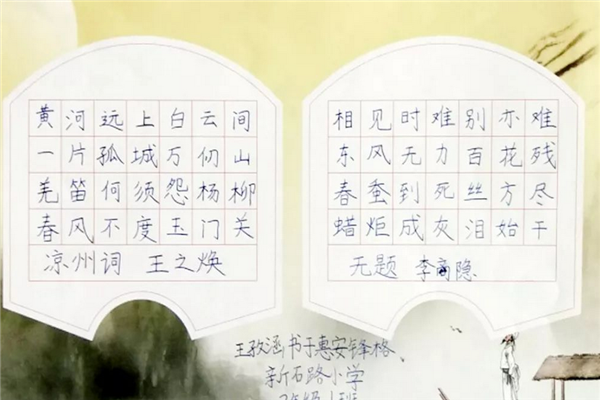 黄河远上白云间
一片孤城万仞山
羌笛何须怨杨柳
春风不度玉门关
凉州词 王之焕
相见时难别亦难
东风无力百花残
春蚕到死丝方尽
蜡炬成灰泪始干
无题 李商隐
王孜涵书于惠安锋格、
新石路小学